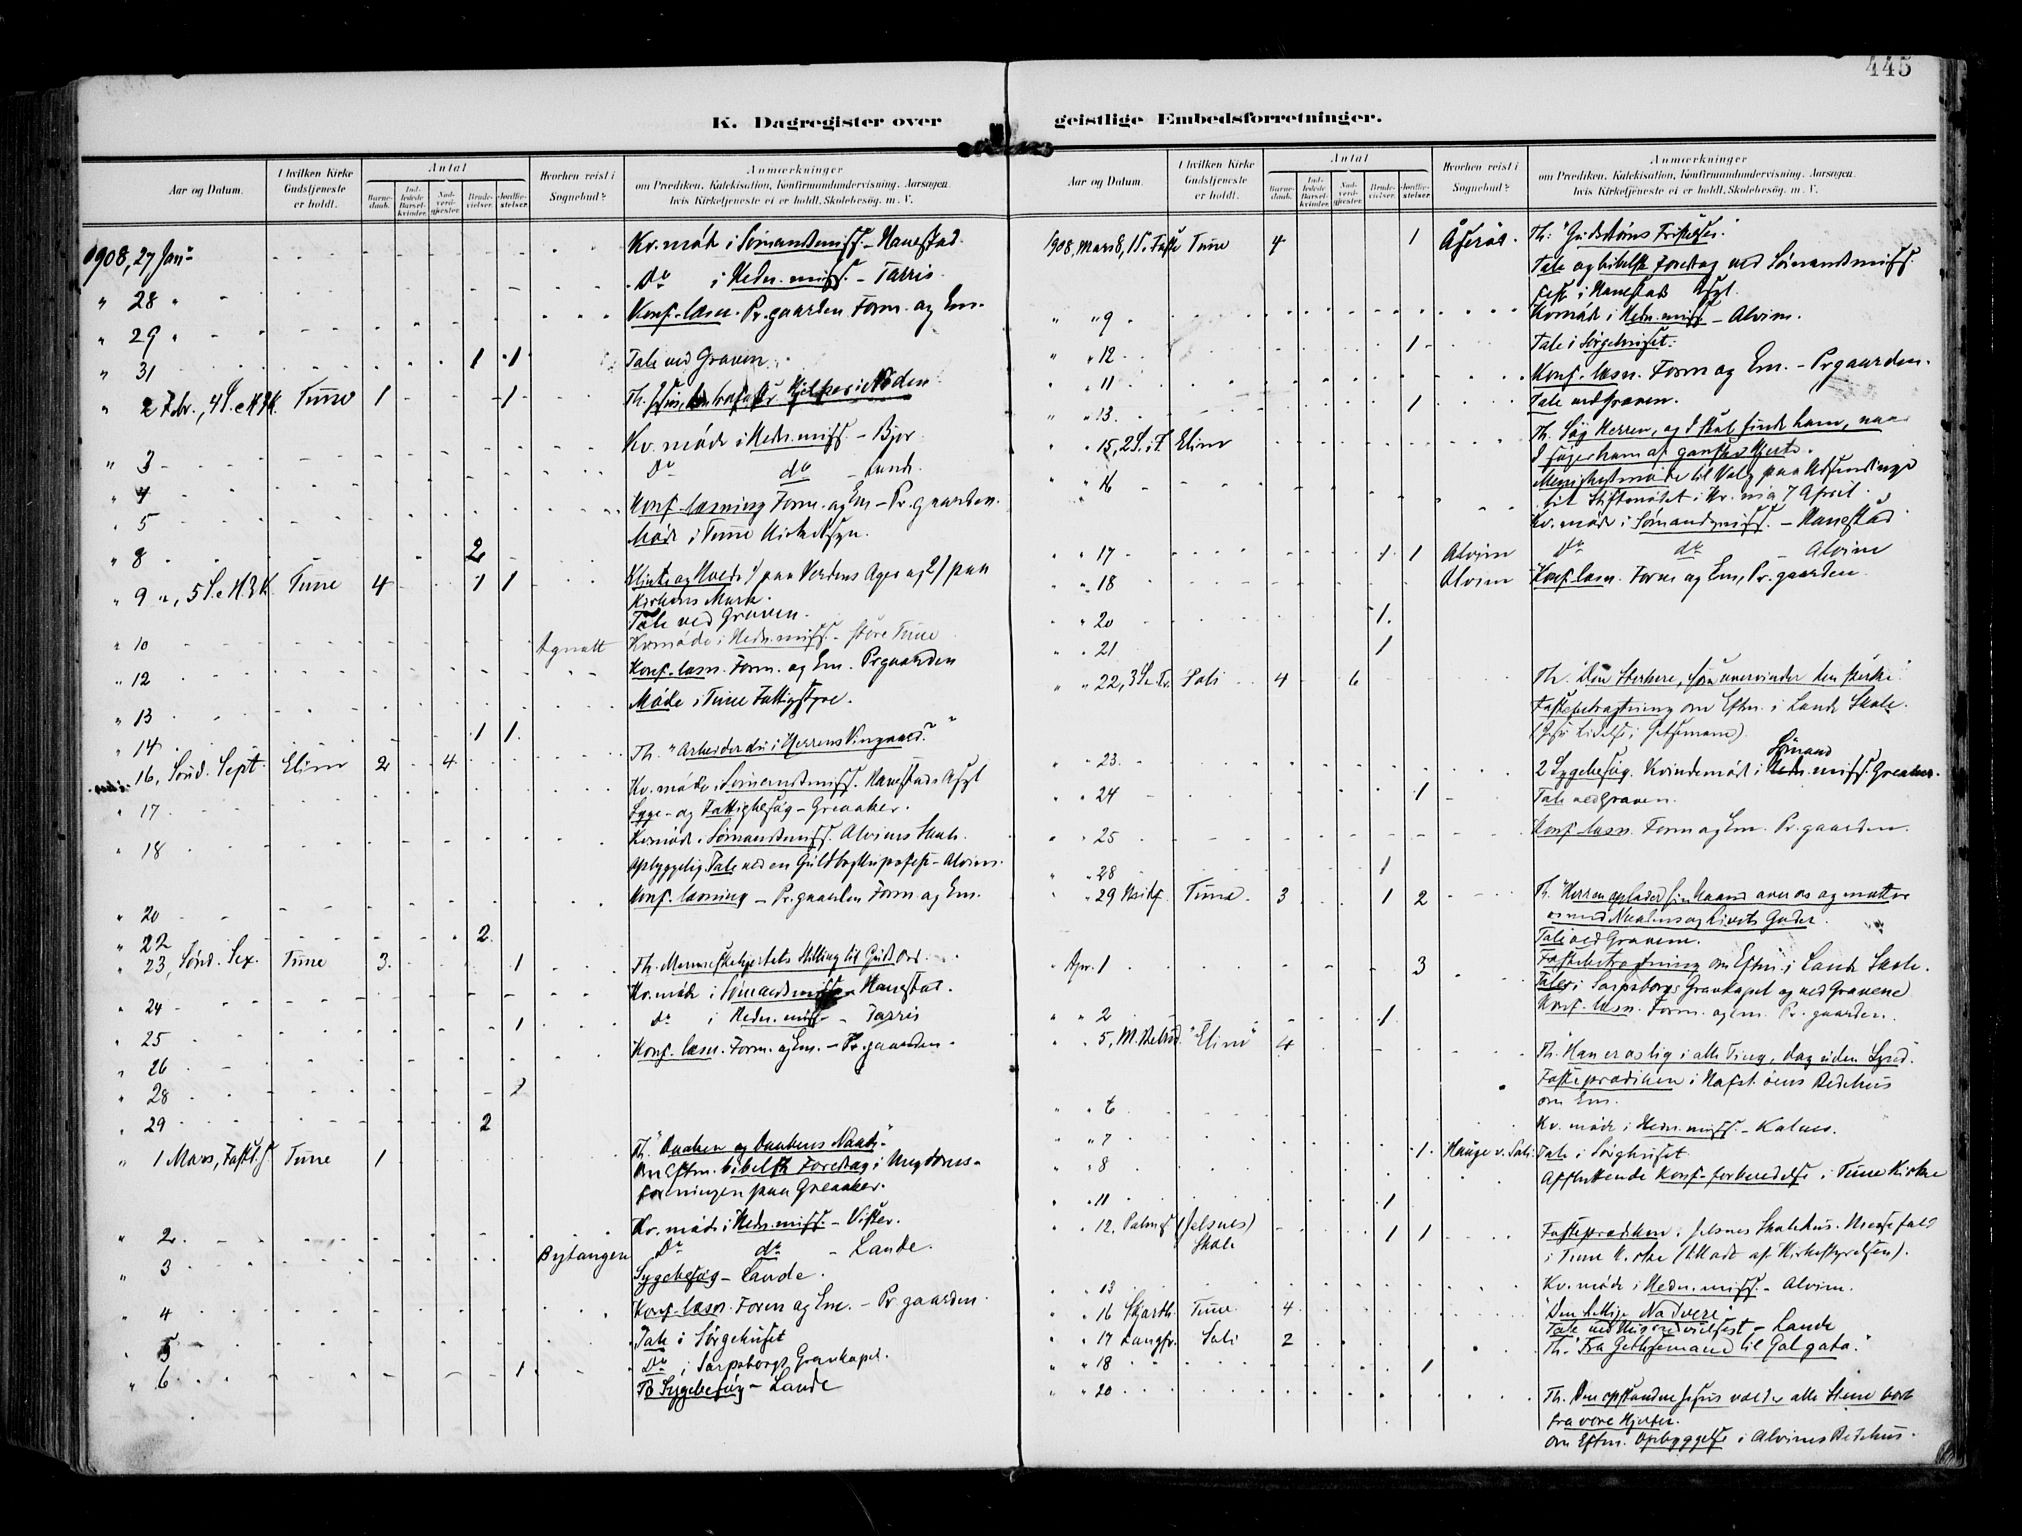 445
K. Dagregister over geistlige Embedsforretninger.
Aar og Datum. I hvilken Kirke Gudstjeneste er holdt. Antal Barnedaab. Indledede Barselkvinder. Nadverdgjester. Brudevielser. Jordfæstelser. Hvorhen reist i Sognebud? Anmærkninger om Prædiken, Katekisation, Konfirmandundervisning, Aarsagen, hvis Kirketjeneste ei er holdt, Skolebesøg, m. V.
1908, 27 Jan. Kv. møde i Sømandsmiss. - Hanestad.
" 28 " Do i Hedn. miss. - Tarris.
" 29 " Konf. læsn. Pr. gaarden Form. og Em.
" 31 1 1 Tale ved Graven.
" 2 Febr., 4 S. e. H3K. Tune 1 1 Th.
" 3 Kv. møde i Hedn. miss. - Bjor.
" 4 Do do - Lande.
" 5 Konf. læsning Form. og Em - Pr. gaarden.
" 8 2 Møde i Tune Kirketilsyn.
" 9 ", 5 S. e. H3K. Tune 4 1 1 Klinte og Hvede 1/ paa Verdens Ager og 2/ paa
Kirkens Mark.
Tale ved Graven.
" 10 Agnalt Kv. møde i Hedn. miss. - Store Tune
" 12 Konf. læsn. Form. og Em. Pr. gaarden
" 13 Møde i Tune Fattigstyre.
" 14 1 1
16, Sønd. Sept. Elim 2 4 Th. "Arbeider du i Herrens Vingaard?"
" 17 Kv. møde i Sømandsmiss. Hanestads Asyl
Syge- og Fattigbesøg - Greaaker.
" 18 Kv. møde i Sømandsmiss. Alvims Skole.
Opbyggelig Tale ved en Guldbryllupsfest - Alvim.
" 20 Konf. læsning - Pr. gaarden Form og Em.
" 22 2
" 23, Sønd. Sex. Tune 3 1 Th. Menneskehjertets Stilling til Guds Ord.
" 24 Kv. møde i Sømandsmiss. - Hanestad.
" 25 1 Do i Hedn. miss. - Tarris
" 26 Konf. læsn. Form. og Em. - Pr. gaarden.
" 28
" 29 2
" 1 Mars, Fastel. S Tune 1 Th. "Daaben og Daabens Naade"
Om Eftm. bibelsk Foredrag i Ungdoms-
foreningen paa Greaaker.
" 2 Kv. møde i Hedn. miss. - Vister.
" 3 Bytangen Do do - Lande.
Sygebesøg - Lande.
" 4 Konf. læsn. Form og Em. - Pr. gaarden.
" 5 Tale i Sørgehuset
" 6 1 Do i Sarpsborgs Gravkapel.
Sygebesøg - Lande
Aar og Datum. I hvilken Kirke Gudstjeneste er holdt. Antal Barnedaab. Indledede Barselkvinder. Nadverdgjester. Brudevielser. Jordfæstelser. Hvorhen reist i Sognebud? Anmærkninger om Prædiken, Katekisation, Konfirmandundervisning, Aarsagen, hvis Kirketjeneste ei er holdt, Skolebesøg, m. V.
1908, Mars 8, 1 S. i Faste Tune 4 1 Aaserøe. Th: "Gudsdoms Fristelse.
Tale og bibelsk Foredrag ved Sømandsmiss.
fest i Hanestads Asyl.
" " 9 Kv. møde i Hedn. miss. - Alvim.
" " 12 1 Tale i Sørgehuset.
" " 11 Konf. læsn. Form og Em. - Pr. gaarden.
" " 13 1 Tale ved Graven.
" 15, 2 S. i F. Elim Th. Søg Herren, og I skal finde ham, naar
I søger ham af ganske Hjerte.
" 16 Menighedsmøde til Valg paa Udsendinge
til Stiftsmødet i Kr. nia 7 April.
Kv. møde i Sømandsmiss. - Hanestad
" " 17 1 1 Alvim Do do - Alvim
" " 18 Alvim Konf. læsn. Form og Em, Pr. gaarden.
" " 20 1
" " 21 1
" " 22, 3 S. i F. Soli 4 6 Th. Den Sterkere, som overvinder den sterke.
Fastebetragtning om Eftm. i Lande Skole.
(Jesu Lidelse i Getsemane).
" " 23 2 Sygebesøg. Kvindemøde i Sømand miss. Greaaker.
" " 24 1 Tale ved Graven.
" " 25 Konf. læsn. Form og Em. Pr. gaarden.
" " 28 1
" 29 Midf. Tune 3 1 2 Th. Herren oplader sin Haand over os og mætter
os med Naadens og Livets Goder.
Tale ved Gravene.
" Apr. 1 3 Fastebetragtning om Eftm. i Lande Skole.
Taler i Sarpsborgs Gravkapel og ved Gravene
" " 2 1 Konf. læsn. Form. og Em. Pr. gaarden.
" " 5, M. Bebud. "Elim" 4 Th. "Han er os lig i alle Ting, dog uden Synd."
Fasteprædiken i Hafsl. øens Bedehus
om Em.
" " 6 Kv. møde i Hedn. miss. - Kalnes.
" " 7 1 Hauge v. Soli Tale i Sørgehuset
" " 8 Afsluttende Konf. forberedelse i Tune Kirke
" " 11 1
" " 12, Palmes (Jelsnes) Skole 1 1 Fasteprædiken i Jelsnes Skolehus. Messefald
i Tune Kirke (tilladt af Kirkestyrelsen).
" " 13 Kv. møde i Hedn. miss. - Alvim.
" " 16 Skjærth. Tune 4 "Den hellige Nadvere"
" " 17 Langfr. Soli 2 - Lande
Th. "Fra Gethsemane til Golgata."
" " 18 1
" " 20 Th. Den opstandne Jesus vælder alle Stene bort
fra vore Hjerter.
Om Eftm. Opbyggelse i Alvims Bedehus.